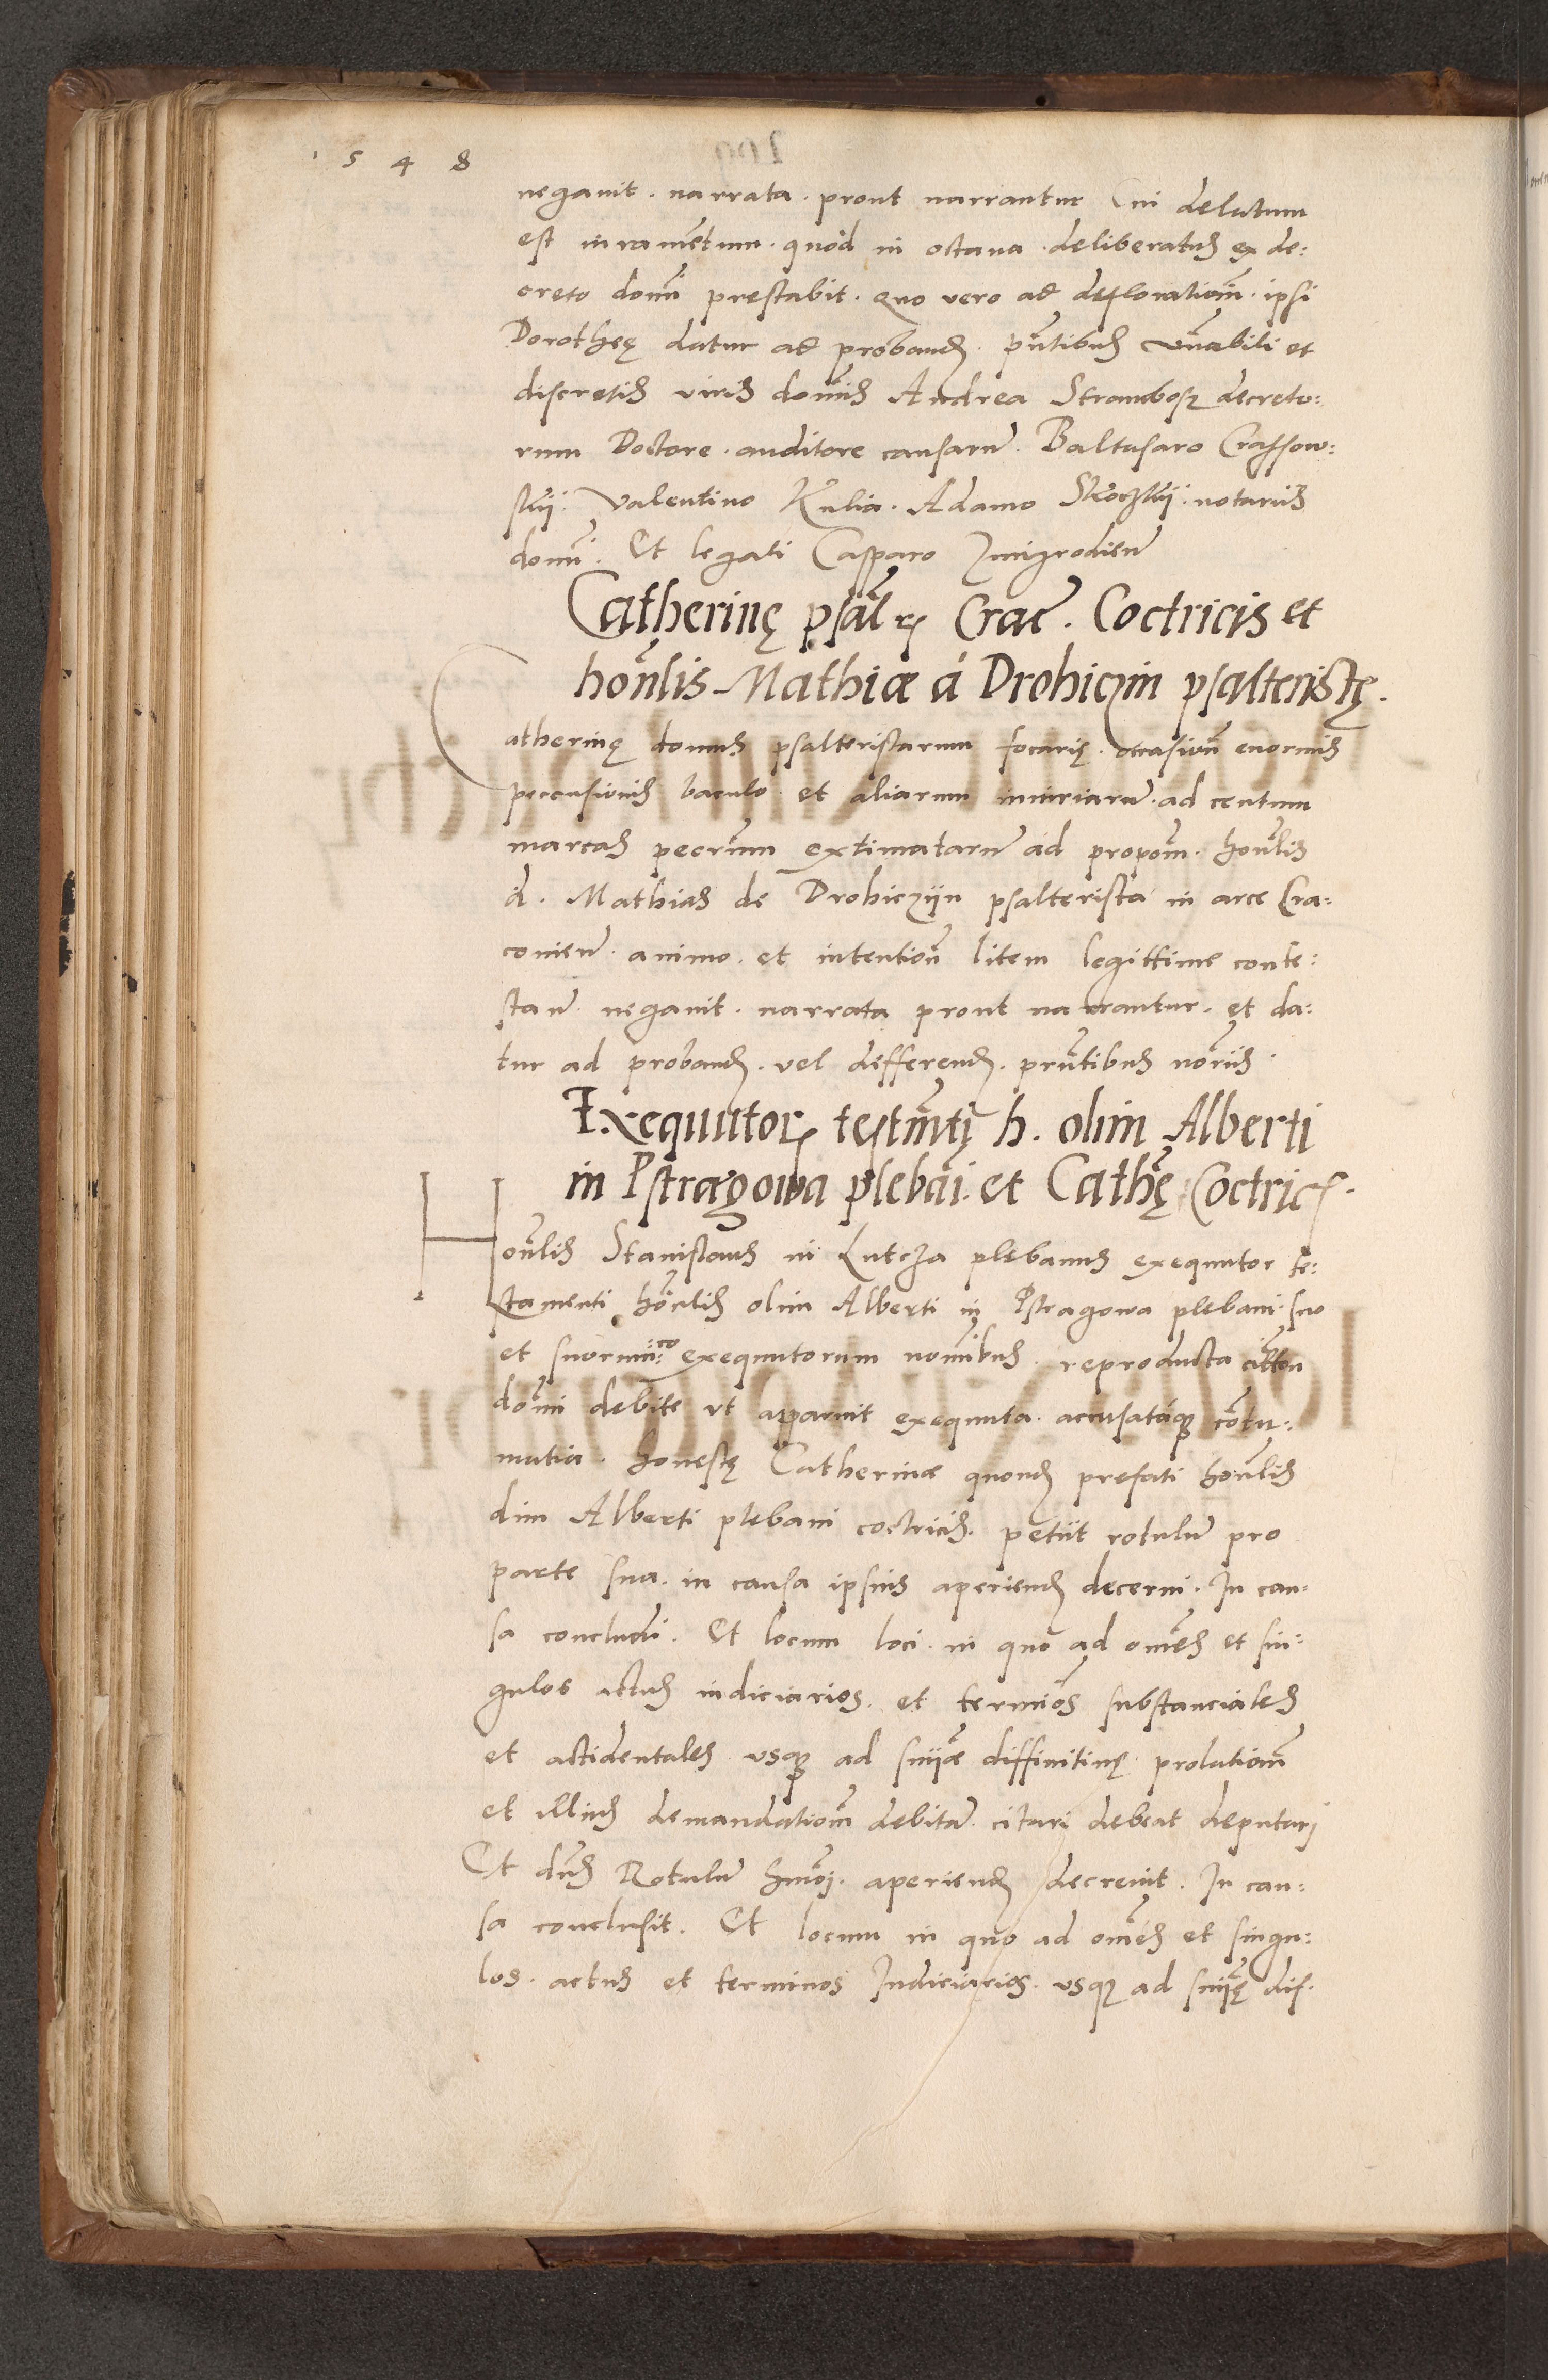 1 5 4 8
negavit . narrata . prout narrantur Cui delatum
est iuramẽtum . quod in octava deliberatus ex de:
creto domĩ prestabit . Quo vero ad deflorationẽ . ipsi
Dorotheę datur ad proband . pñtibus veñabili et
discretis viris domĩs Andrea decreto:
rum Doctore . auditore causarũ . Baltasaro Crassow:
skij . Valentino Kulia . Adamo . notariis
domĩ . Et legati Casparo Zmigrodieñ
Catherinę psalt Craĉ . Coctricis et
hoñlis Mathiæ á Drohiczin psalteristę .
Catherinę domus psalteristarum focarię . occasioñ enormis
percussionis baculo et aliarum iniuriarũ . ad centum
marcas pecũm extimatarũ ad propoñ . hoñlis
d . Mathias de Drohiczijn psalterista in arce Cra:
covieñ . animo . et intentioñ litem legittime conte:
stañ negavit . narrata prout narrantur . et da:
tur ad proband . vel defferend . pñtibus noriis .
Exequutor testm̃ti h . olim Alberti
in Pstragowa plebãi . et Cathẽ Coctric .
Hoñlis Stanislaus in Lutcza plebanus exequutor te:
stamenti hoñlis olim Alberti in Pstragowa plebani . suo
et suorum : co exequutorum nomĩbus . reproducta citõn
domĩ debite ut apparuit exequuta . accusataq cõtu:
matia . honestę Catherinæ quond prefati hoñlis
olim Alberti plebani coctricis . petiit rotulũ pro
parte sua . in causa ipsius aperiend decerni . In cau:
sa concludi . Et locum loci . in quo ad omẽs et sin:
gulos actus iudiciarios . et termiõs substanciales
et accidentales usq ad sñiæ diffinitivę . prolationẽ
et illius demandationẽ debitã . citari debeat deputari
Et dñs Rotulũ hmõi . aperiend decrevit . In cau:
sa conclusit . Et locum in quo ad omẽs et singu:
los . actus et terminos Iudiciarios . usq ad sñię dif: